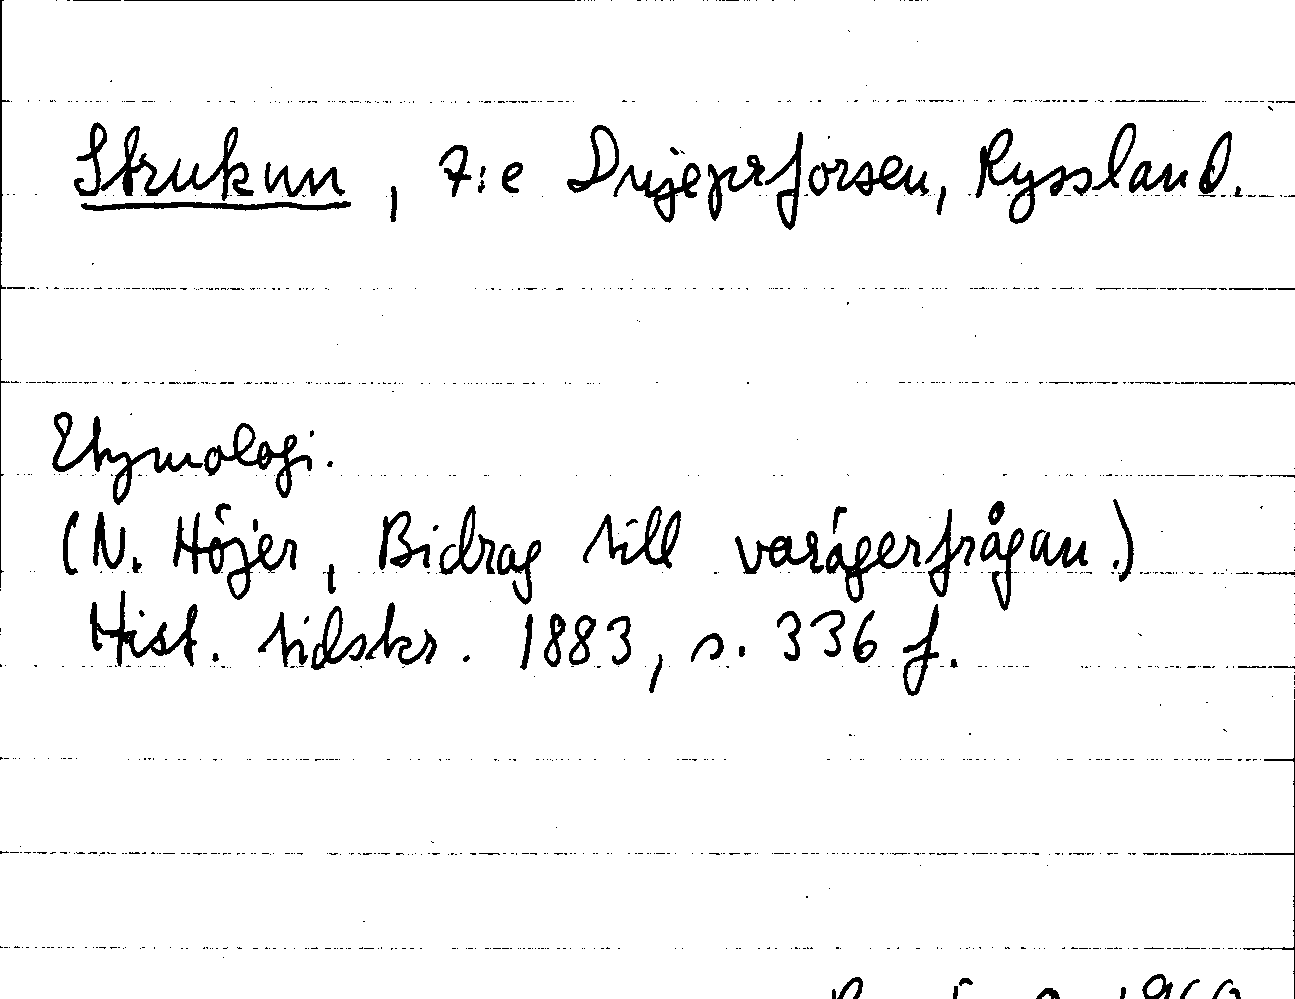 Strukun, 7:e Dnjeprforsen, Ryssland.
Etymologi.
(N. Höjer, Bidrag till varägerfrågan.)
Hist. tidskr. 1883, s. 336 f.